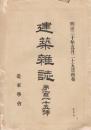 明治三十年五月二十五日發兌
建築雜誌
第百二十五號
造家學會